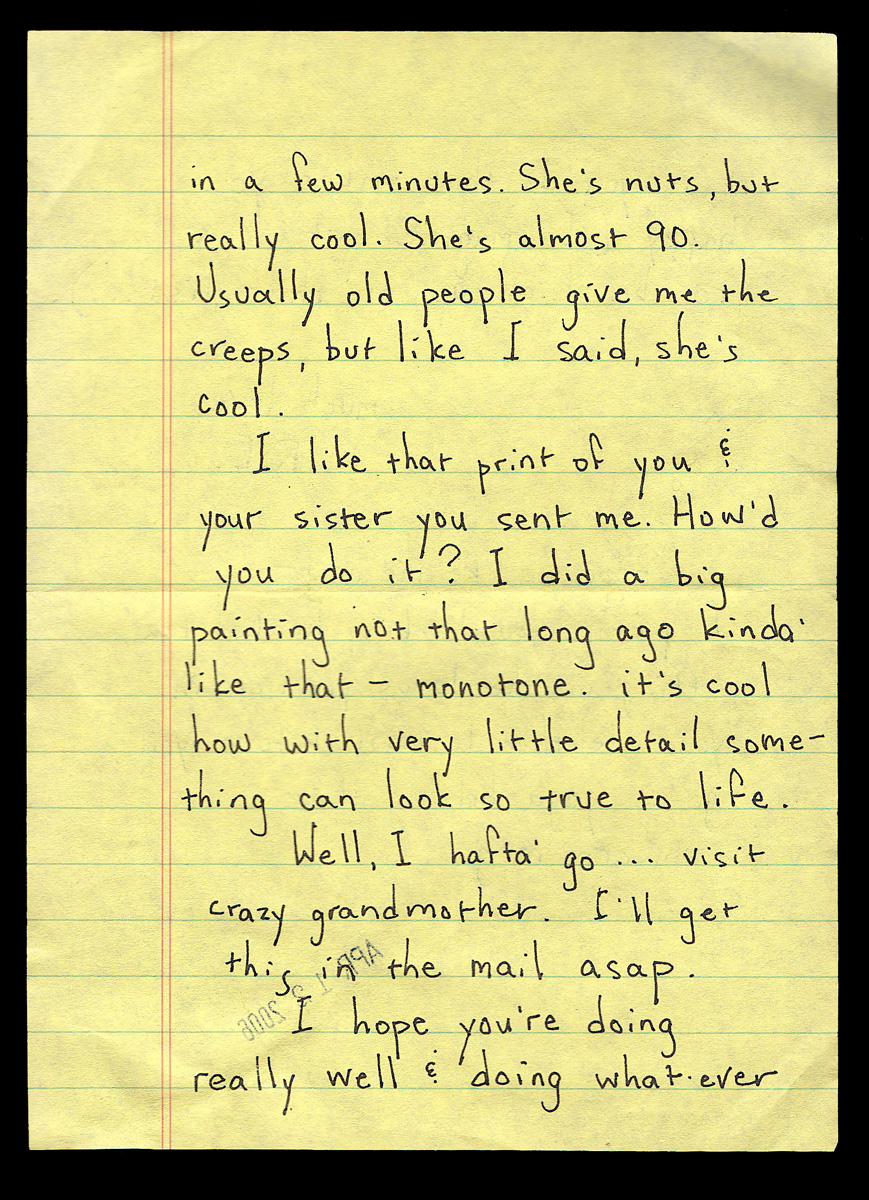 in a few minutes. She's nuts, but
really cool. She's almost 90.
Usually old people give me the
creeps, but like I said, she's
cool.
I like that print of you &
your sister you sent me. How'd
you do it? I did a big
painting not that long ago kinda'
like that – monotone. it's cool
how with very little detail some-
thing can look so true to life.
Well, I hafta' go ... visit
crazy grandmother. I'll get
this in the mail asap.
APR 13 2006
I hope you're doing
really well & doing what.ever